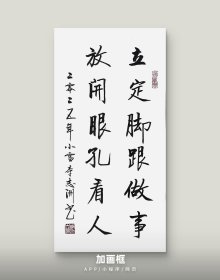 立定脚跟做事
放开眼孔看人
二零二五年小雪李志洲书
加画框
APP/小程序/网页